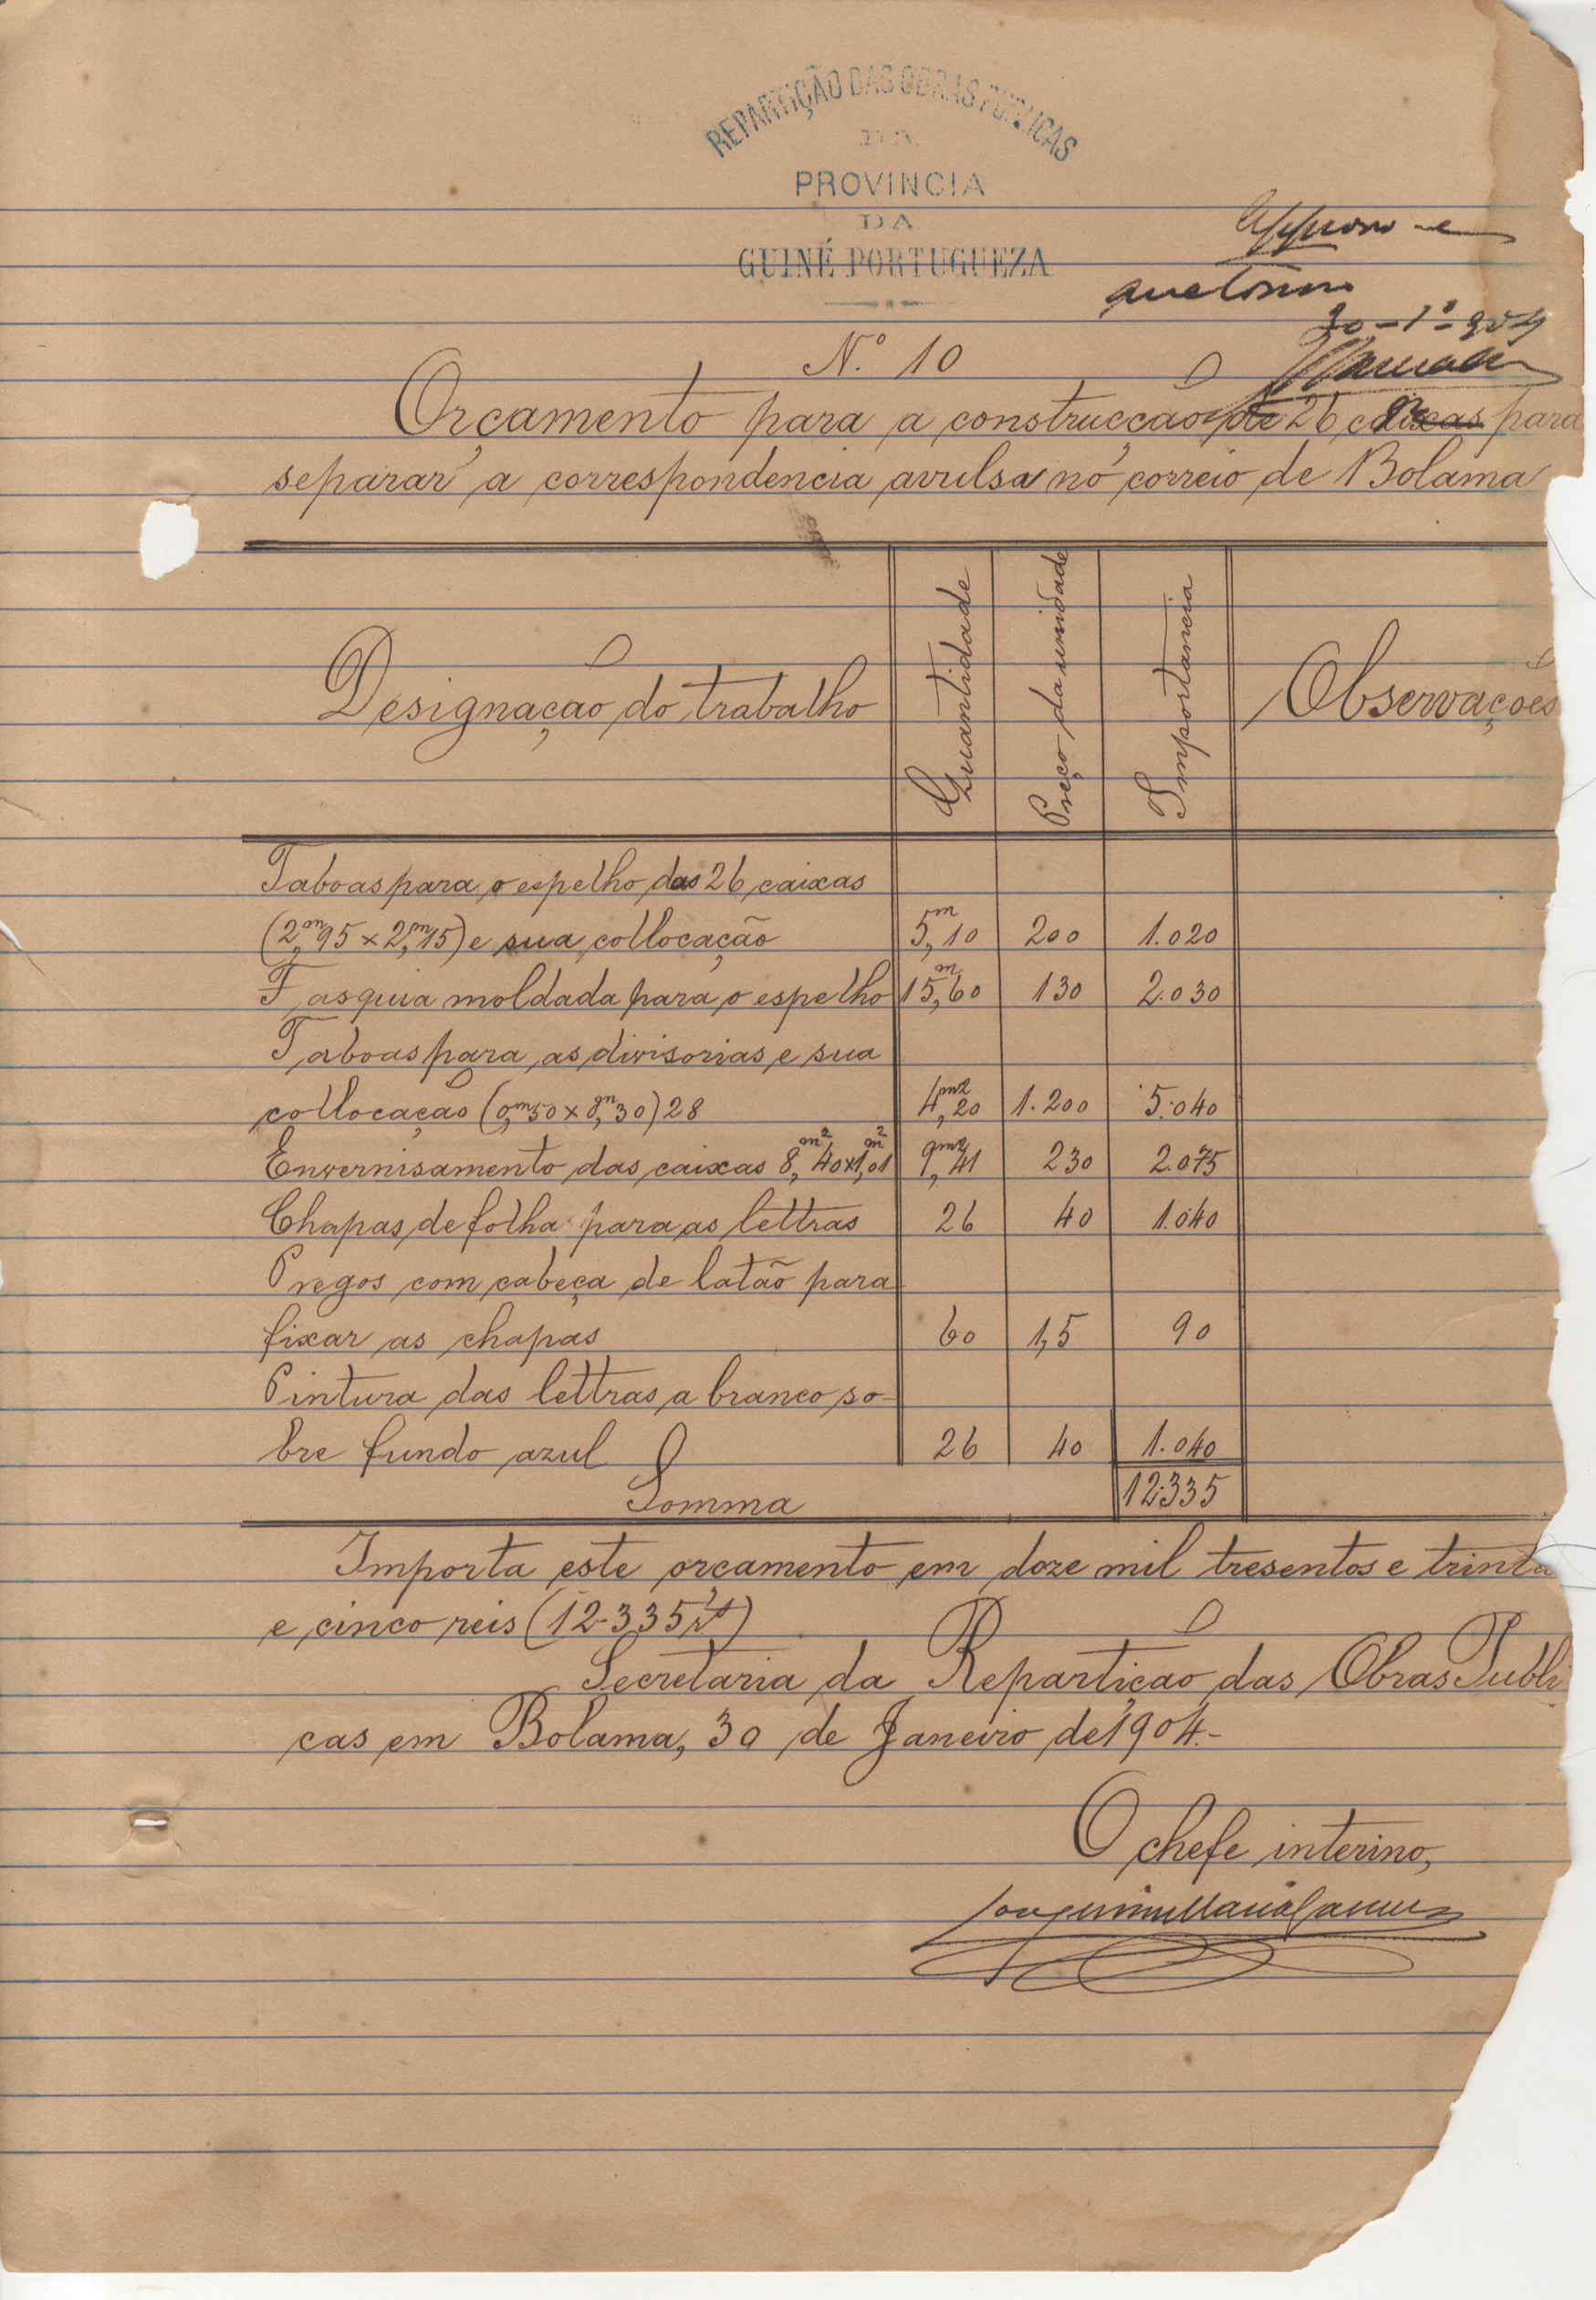 REPARTIÇÃO DAS OBRAS PUBLICAS
DA
PROVINCIA
DA
GUINÉ PORTUGUEZA
Approvo e
auctoriso
30-1º-904
N.º 10
Orçamento para a construcção de 26 caixas para
separar a correspondencia avulsa no correio de Bolama
Designação do trabalho Quantidade Preço da unidade Importancia Observações
Taboas para o espelho das 26 caixas
(2,m95 × 2,m15) e sua collocação 5,m10 200 1.020
Fasquia moldada para o espelho 15,m60 130 2.030
Taboas para as divisorias e sua
collocação (0,m50 × 0,m30) 28 4,m220 1.200 5.040
Envernisamento das caixas 8,m240×1,m201 9,m241 230 2.075
Chapas de folha para as lettras 26 40 1.040
Pregos com cabeça de latão para
fixar as chapas 60 1,5 90
Pintura das lettras a branco so-
bre fundo azul 26 40 1.040
Somma 12.335
Importa este orçamento em doze mil tresentos e trinta
e cinco reis (12.335 rs)
Secretaria da Repartição das Obras Publi
cas em Bolama, 30 de Janeiro de 1904.-
O chefe interino,